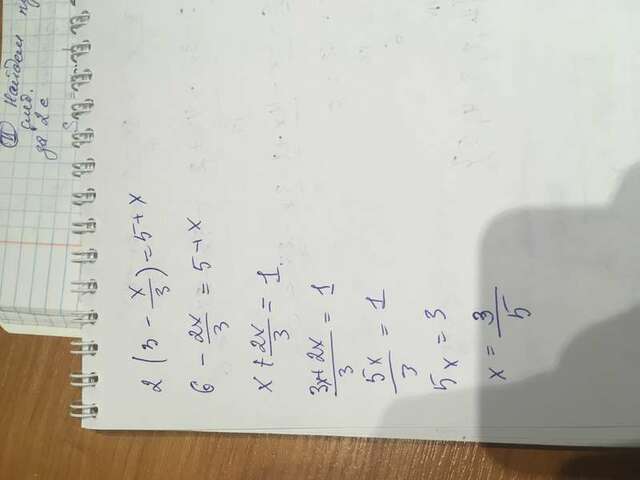 II Найдем
след.
за 2 с
S
2 (3 - x/3) = 5 + x
6 - 2x/3 = 5 + x
x + 2x/3 = 1
3x + 2x/3 = 1
5x/3 = 1
5x = 3
x = 3/5